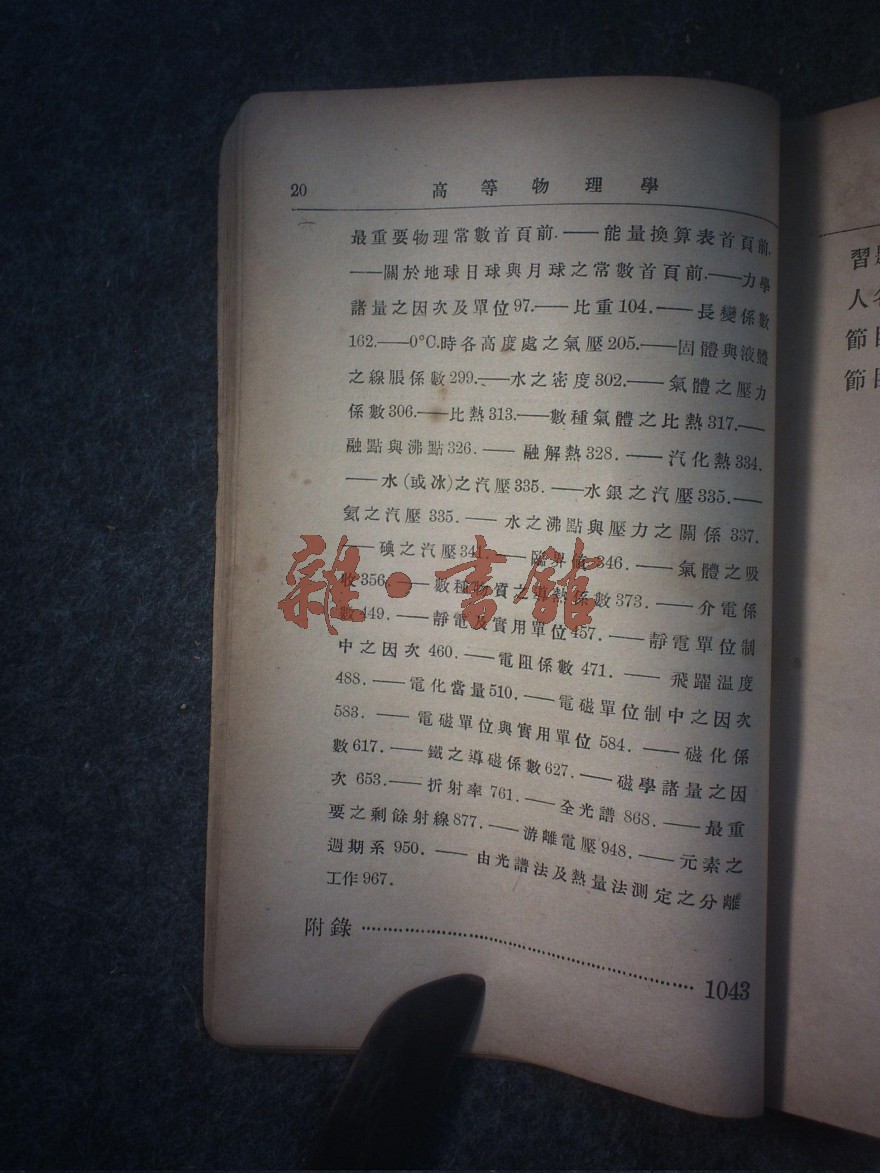 20 高等物理學
最重要物理常數首頁前.——能量換算表首頁前.
——關於地球日球與月球之常數首頁前.——力學
諸量之因次及單位97.——比重104.——長變係數
162.——0°C.時各高度處之氣壓205.——固體與液體
之線脹係數299.——水之密度302.——氣體之壓力
係數306.——比熱313.——數種氣體之比熱317.——
融點與沸點326.——融解熱328.——汽化熱334.
——水(或冰)之汽壓335.——水銀之汽壓335.——
氨之汽壓335.——水之沸點與壓力之關係337.
——碘之汽壓341.——臨界值346.——氣體之吸
收356.——數種物質之導熱係數373.——介電係
數449.——靜電及實用單位457.——靜電單位制
中之因次460.——電阻係數471.——飛躍温度
488.——電化當量510.——電磁單位制中之因次
583.——電磁單位與實用單位584.——磁化係
數617.——鐵之導磁係數627.——磁學諸量之因
次653.——折射率761.——全光譜868.——最重
要之剩餘射線877.——游離電壓948.——元素之
週期系950.——由光譜法及熱量法測定之分離
工作967.
附錄……………………………………1043
習
人名
節目
節目
雜·書館